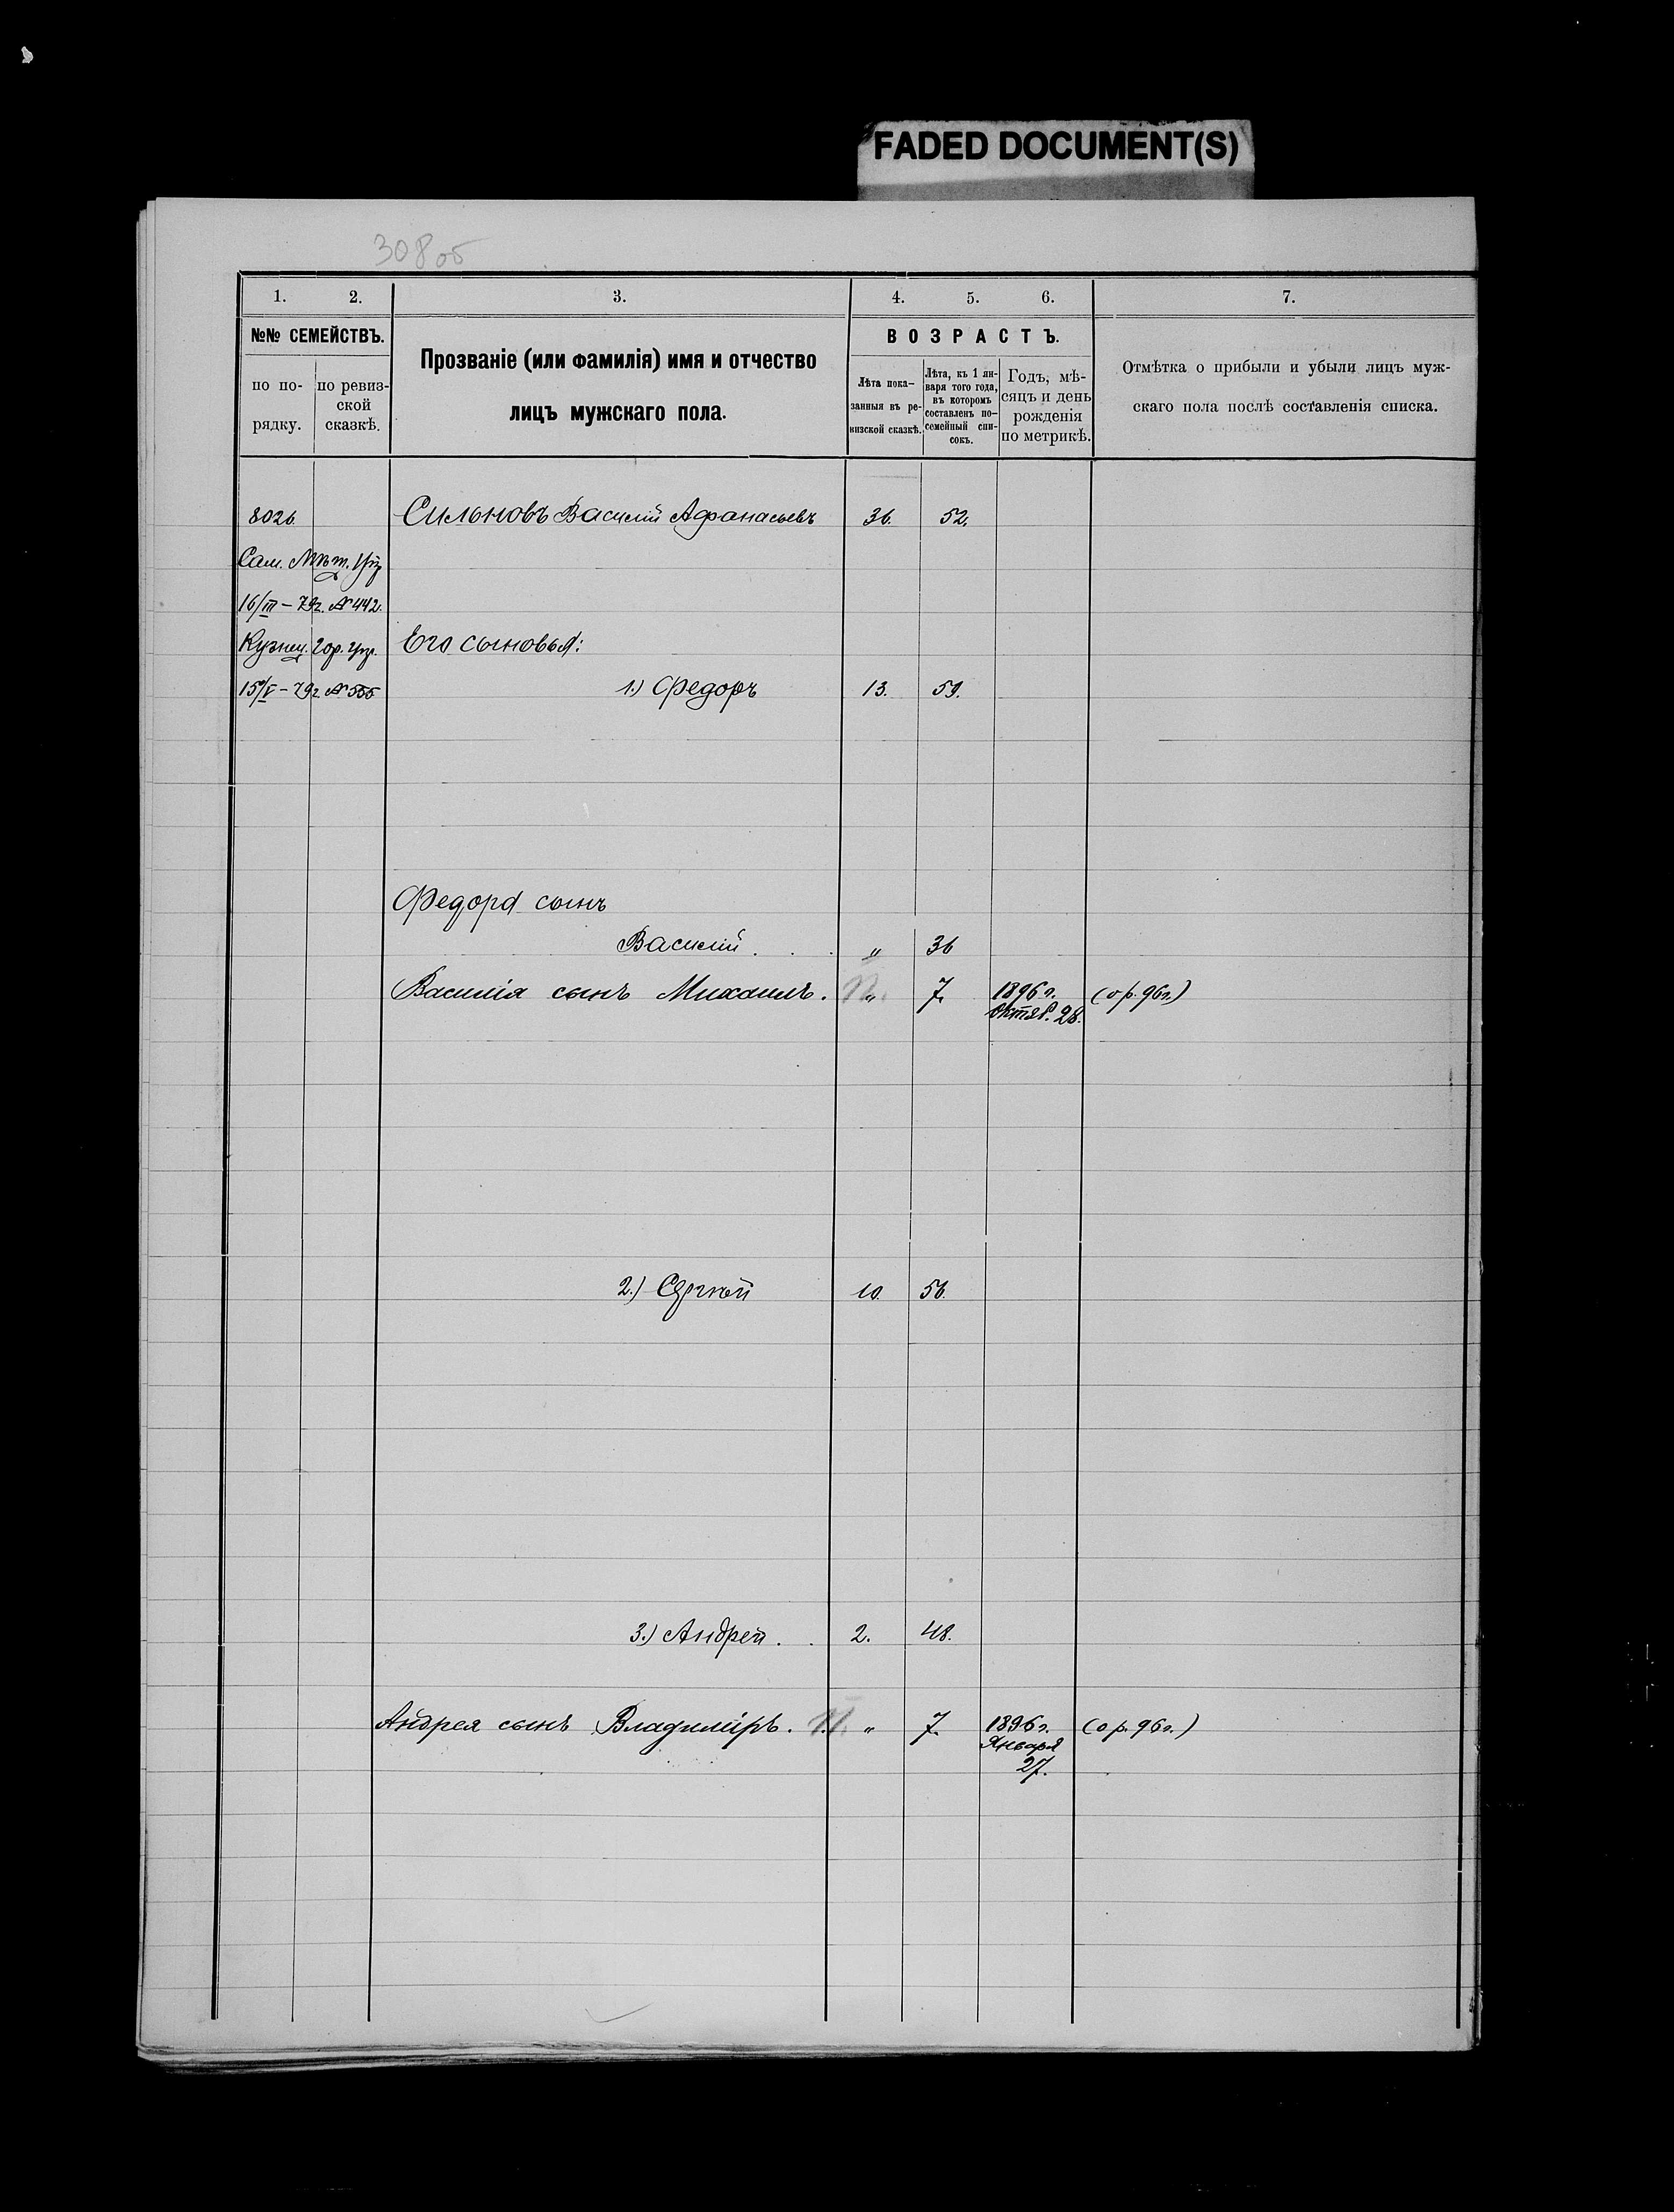 FADED DOCUMENT(S)
308об
1. 2. 3. 4. 5. 6. 7.
№№ СЕМЕЙСТВЪ.
по по-
рядку.
по ревиз-
ской
сказкѣ.
Прозваніе (или фамилія) имя и отчество
лицъ мужскаго пола.
ВОЗРАСТЪ.
Лѣта пока-
занныя въ ре-
визской сказкѣ.
Лѣта, къ 1 ян-
варя того года,
въ которомъ
составленъ по-
семейный спи-
сокъ.
Годъ, мѣ-
сяцъ и день
рожденія
по метрикѣ.
Отмѣтка о прибыли и убыли лицъ муж-
скаго пола послѣ составленія списка.
8026. Сильновъ Василій Афанасьевъ 36. 52.
Сам. Мѣщ. Упр
16/III – 79г. № 442.
Кузнец. Гор. Упр. Его сыновья:
15/V – 79г. № 555 1.) Федоръ 13. 59.
Федора сынъ
Василій . . . „ 36
Василія сынъ Михаилъ. „ 7. 1896 г. (о р. 96 г.)
Октяб. 28.
2.) Сергѣй 10. 56.
3.) Андрей . . 2. 48.
Андрея сынъ Владиміръ. „ 7. 1896 г. (о р. 96 г.)
Января
27.